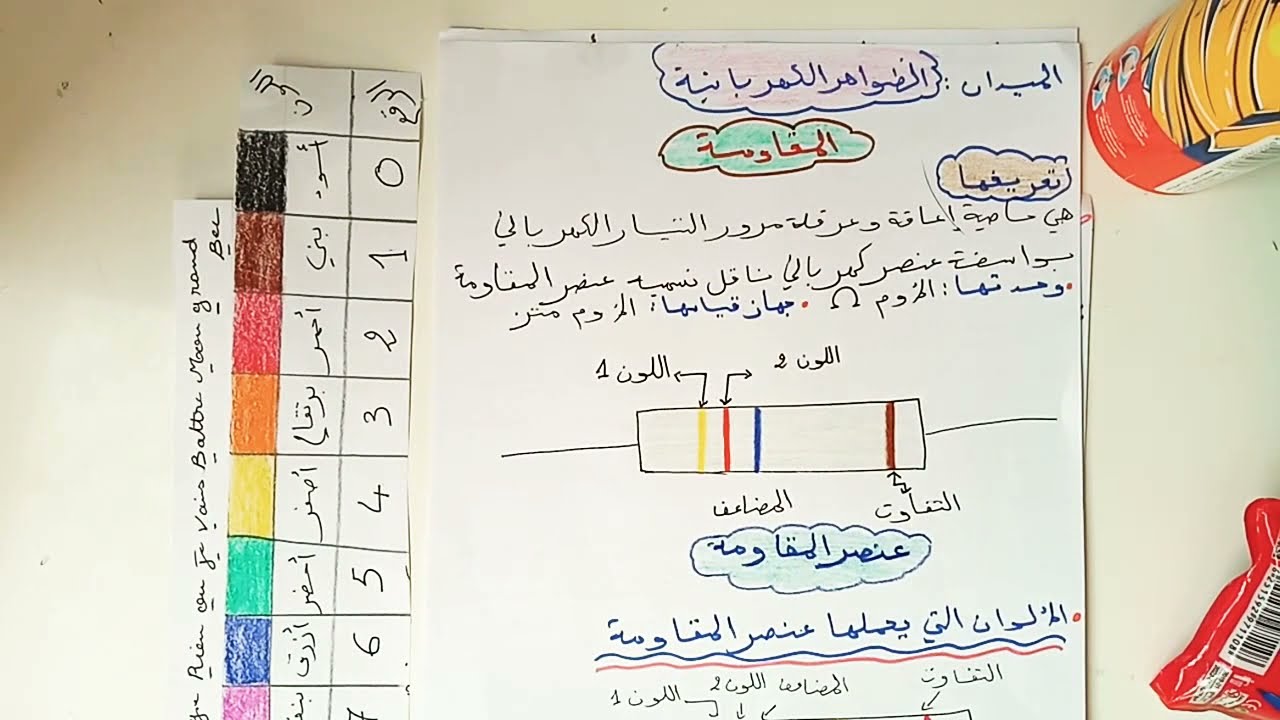 الميدان : الظواهر الكهربائية
المقاومة
تعريفها
هي خاصية إعاقة وعرقلة مرور التيار الكهربائي
بواسطة عنصر كهربائي ناقل نسميه عنصر المقاومة
• وحدتها : الأوم Ω • جهاز قياسها : الأوم متر
اللون 1
اللون 2
المضاعف
التفاوت
عنصر المقاومة
• الألوان التي يحملها عنصر المقاومة
اللون 1 اللون 2 المضاعف التفاوت
اللون الرقم
أسود 0
بني 1
أحمر 2
برتقالي 3
أصفر 4
أخضر 5
أزرق 6
7
Rien ou Je Vais Battre Mon grand
Bec